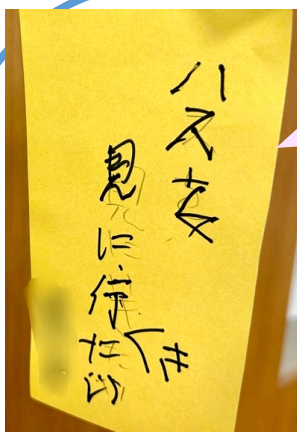 ハスを
見に行きたい